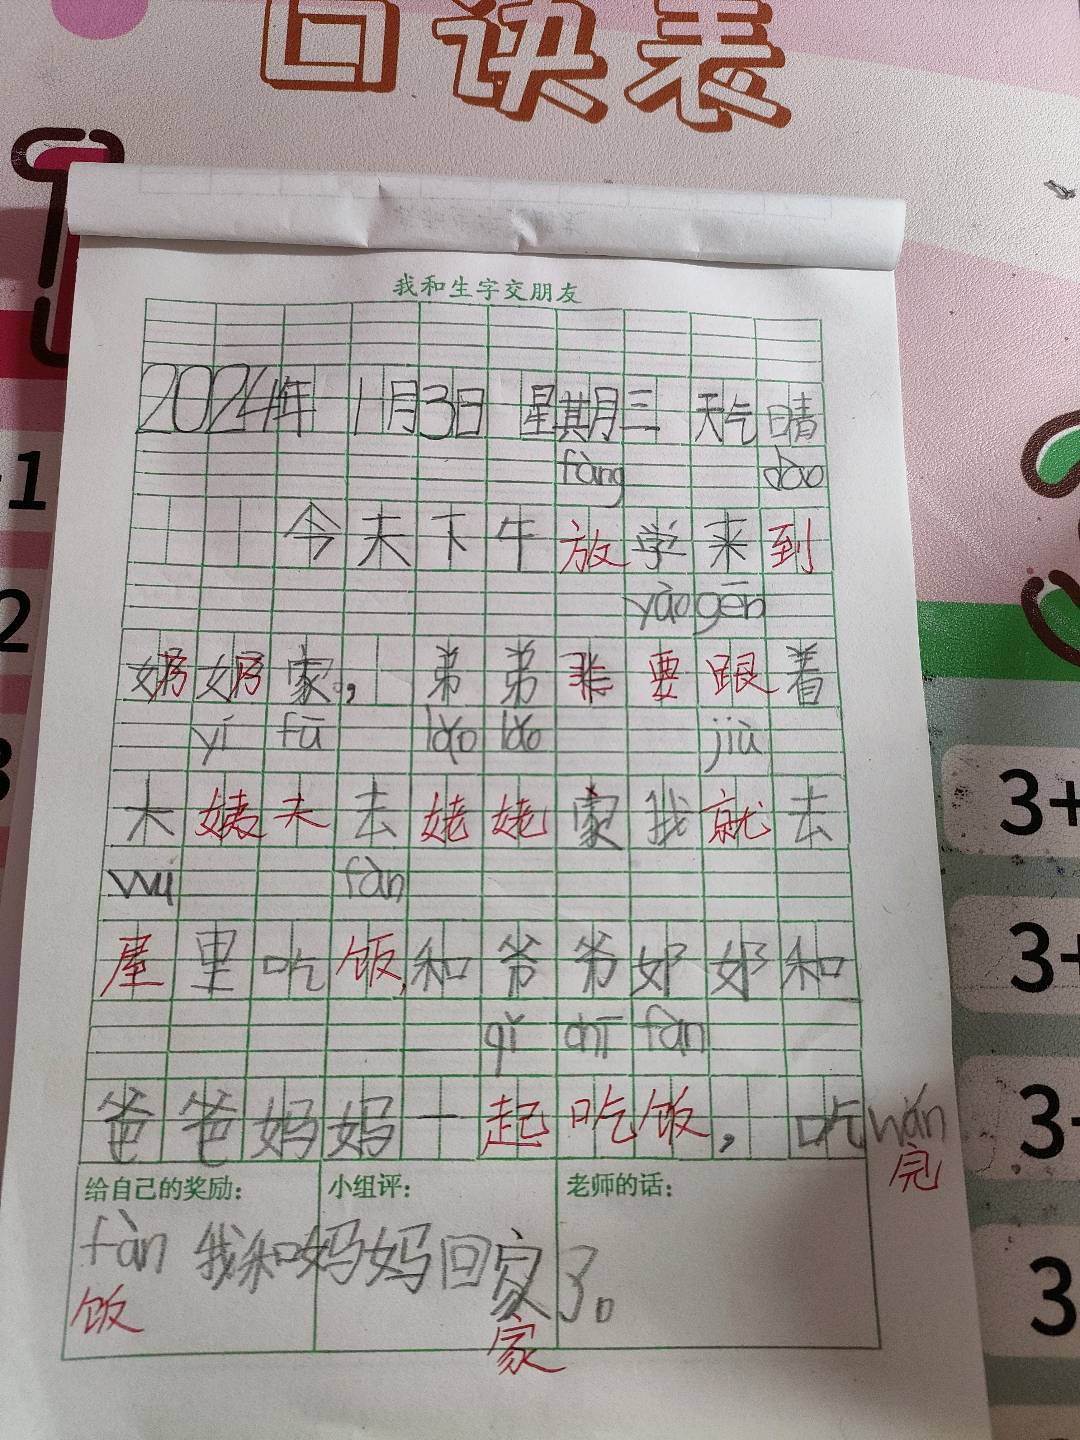 口诀表
我和生字交朋友
2024年 11月3日 星期三 天气晴
fàng dào
今天下午放学来到
yào gēn
奶奶家，弟弟非要跟着
yí fū lǎo lǎo jiù
大姨夫去姥姥家我就去
wū fàn
屋里吃饭，和爷爷奶奶和
qǐ chī fàn
爸爸妈妈一起吃饭，吃wán
完
给自己的奖励： 小组评： 老师的话：
fàn 我和妈妈回家了。
饭 家
1
2
3
3+
3+
3+
3